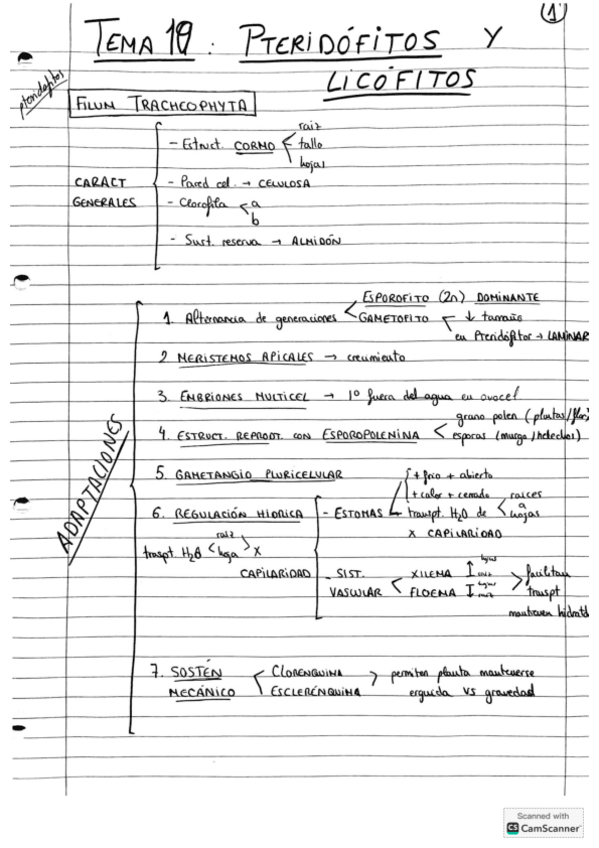 1
TEMA 19: PTERIDÓFITOS Y
LICÓFITOS
pteridofitos
FILUM TRACHEOPHYTA
CARACT GENERALES
- Estruct. CORMO < raiz
tallo
hojas
- Pared cel. → CELULOSA
- Clorofila < a
b
- Sust. reserva → ALMIDÓN
ADAPTACIONES
1. Alternancia de generaciones < ESPOROFITO (2n) DOMINANTE
GAMETOFITO < ↓ tamaño
en Pteridófitos → LAMINAR
2 MERISTEMOS APICALES → crecimiento
3. EMBRIONES MULTICEL → 1º fuera del agua en ovocel
4. ESTRUCT. REPROD. CON ESPOROPOLENINA < grano polen (plantas/flor)
esporas (musgo/helechos)
5. GAMETANGIO PLURICELULAR
6. REGULACIÓN HIDRICA
transpt. H2O < raiz
hoja > x
CAPILARIDAD
- ESTOMAS
+ frio + abierto
+ calor + cerrado
transpt. H2O de < raices
a
hojas
x CAPILARIDAD
- SIST. VASCULAR < XILEMA ↑ hojas
raiz
FLOEMA ↓ hojas
raiz
> facilitan
transpt
mantienen hidratd
7. SOSTÉN MECÁNICO < CLORENQUINA
ESCLERÉNQUINA
> permiten planta mantenerse
erguida vs gravedad
Scanned with
CS CamScanner